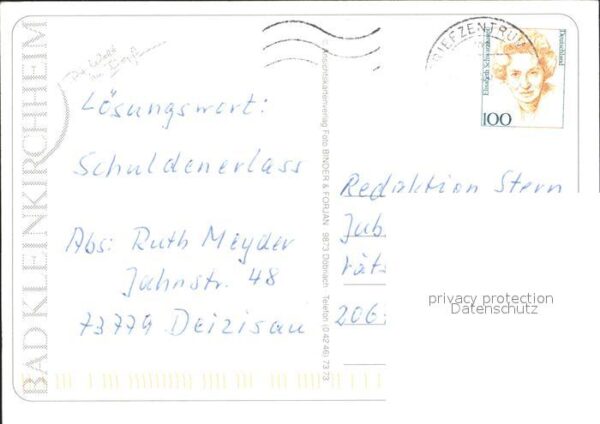 BAD KLEINKIRCHHEIM
Lösungswort:
Schuldenerlass
Abs: Ruth Meyder
Jahnstr. 48
73779 Deizisau
Ansichtskartenverlag Foto BINDER & FORJAN · 9873 Döbriach · Telefon (0 42 46) 73 73
BRIEFZENTRUM
Elisabeth Schwarzkopf
Deutschland
100
Redaktion Stern
Jub
räts
206
privacy protection
Datenschutz